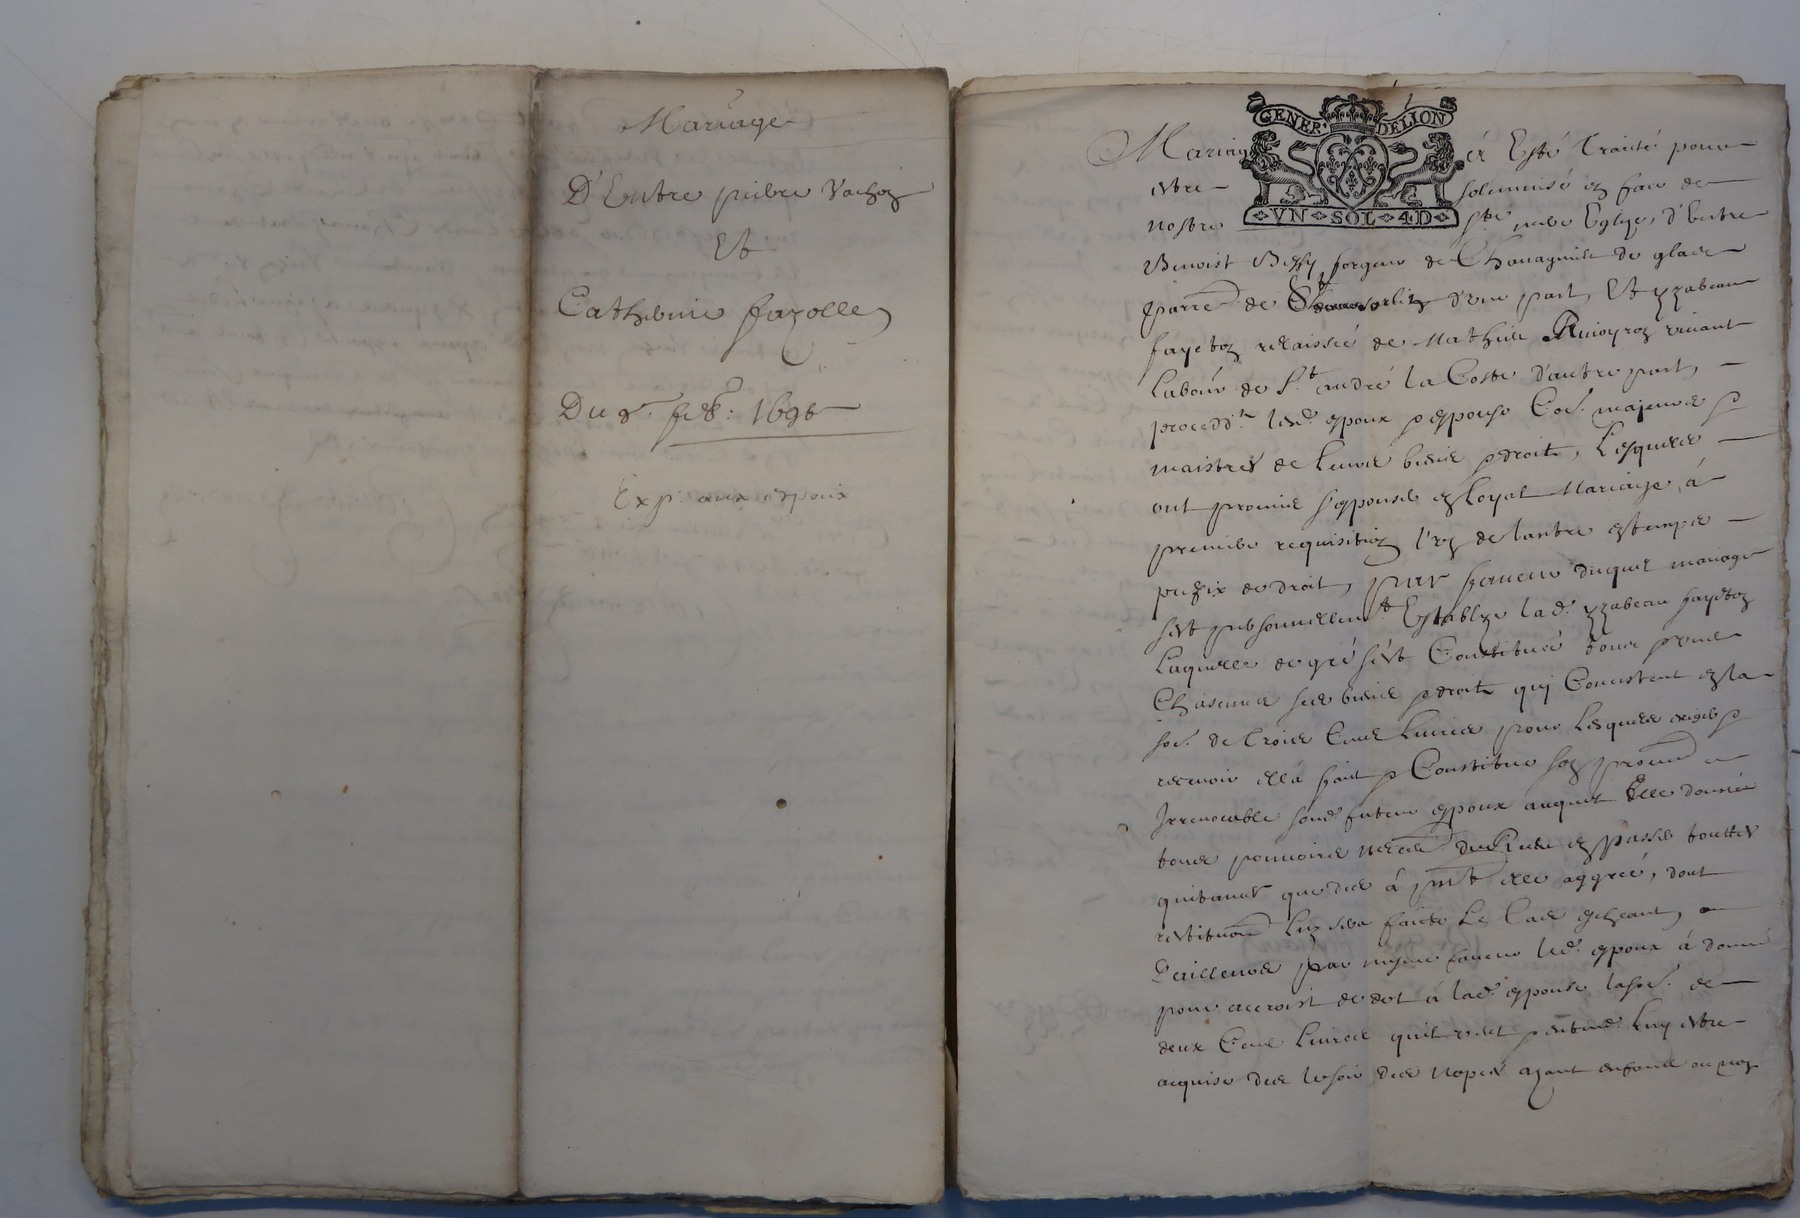 Mariage
D'Entre pierre Vachon
Et
Catherine fayolle
Du 9e. feb: 1696
Exp. aux espoux
GENER. DE LION
VN SOL 4 D
Mariage a Esté traité pour
estre solemnisé en face de
nostre Ste mere Eglize, d'Entre
Benoist forgeur de Chouagnieu de
parre. de d'une part, Et yzabeau
fayeton relaissée de Mathieu vivant
Labour. de St. andré la Coste d'autre part,
procedd.t lesd. espoux & espouse Co.e majeurs &
maistres de leurs biens & droits, Lesquels
ont promis s'espouser en Loyal Mariage, à
premiere requisition l'un de lautre estemps
prefix de droit, pour faveur duquel mariage
s'est personnellem.t Establye lad. yzabeau fayeton
Laquelle de gré s'est Constitué tous &
Chascuns ses biens & droits qui Consistent en la
so.e de trois Cens Livres pour Lesquels exiger &
recevoir ella fait & Constitue son procur.
Irrevocable sond. futeur espoux auquel Elle donne
tous pouvoirs en passer touttes
quitances que des à p.nt elle aggrée, dont
restitution Luy sera faicte Le Cas escheant,
D'ailleurs par mesme faveur led. espoux à donné
pour accroist de dot à lad. espouse la so.e de
deux Cens Livres quil veut & entend Luy estre
acquise des le soir des nopces ayant enfans ou non